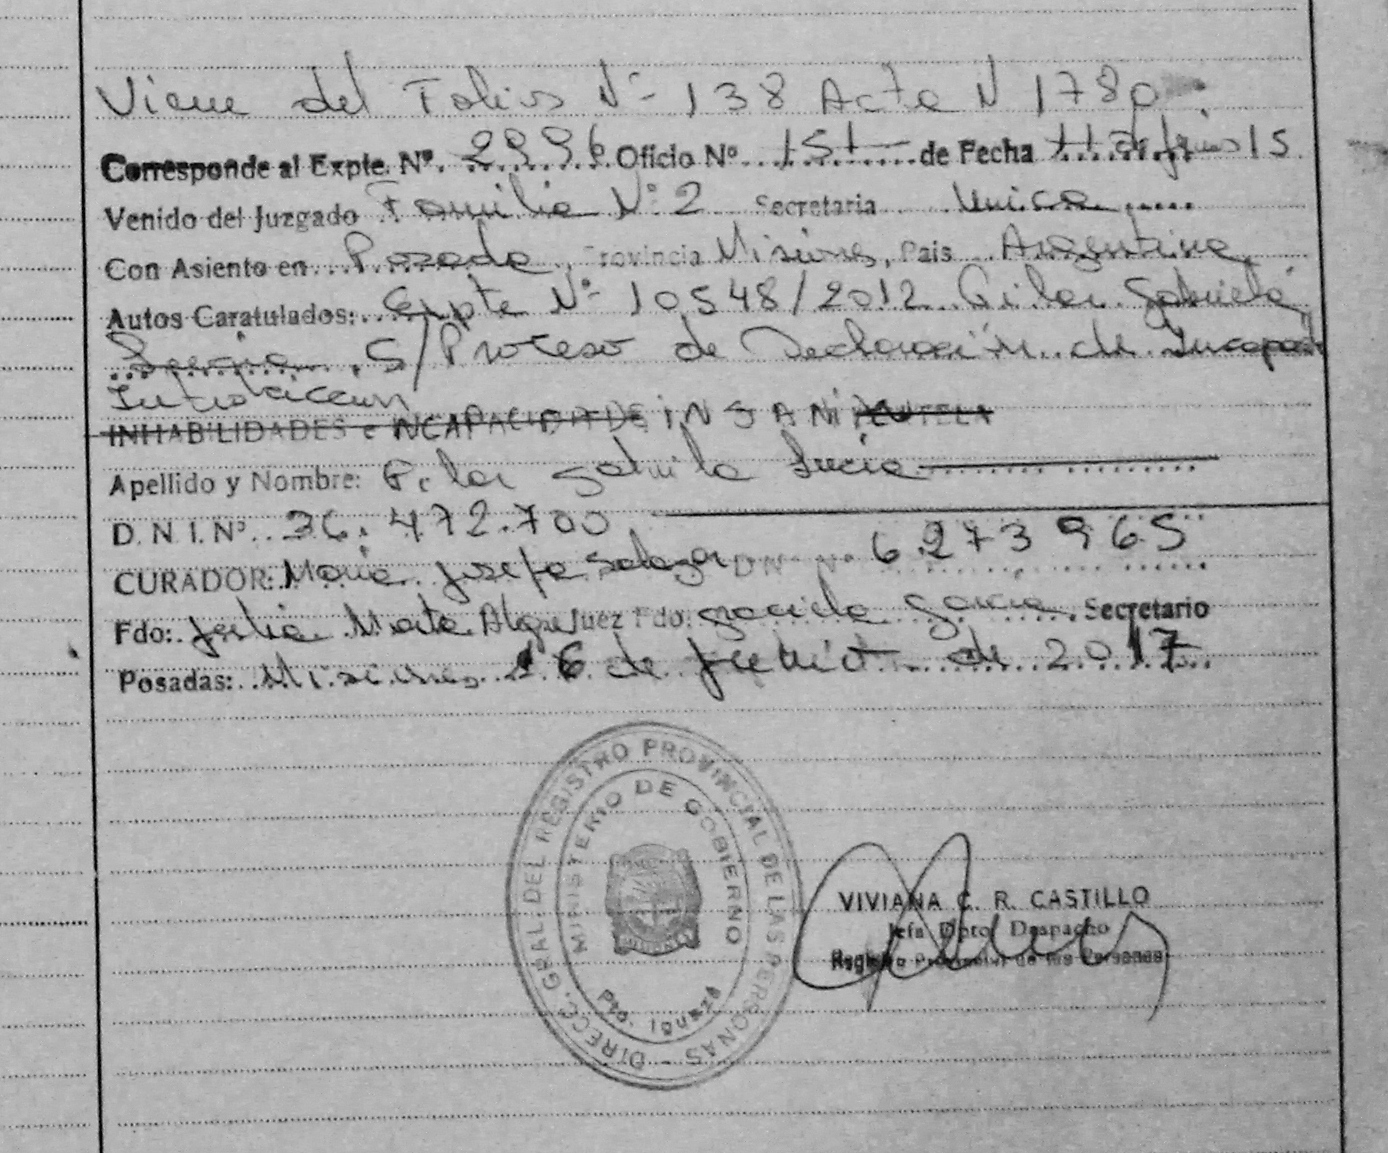 Viene del Folios Nº 138 Acta N 178p.
Corresponde al Expte. Nº. 2996 Oficio Nº 151 de Fecha 11 de junio 15
Venido del Juzgado Familia Nº 2 Secretaria Unica
Con Asiento en Posadas, Provincia Misiones, Pais Argentina,
Autos Caratulados: Expte Nº 10548/2012 Piler Gabriela
Lucia S/Proceso de Declaración de Incapac
INHABILIDADES e INCAPACIDADE INSANI TUTELA
Apellido y Nombre: Piler Gabriela Lucia
D. N. I. Nº 36.472.700
CURADOR: Maria Josefa Salazar DNI Nº 6.273965
Fdo: Marta Juez Fdo: Graciela Garcia, Secretario
Posadas: Misiones, 16 de de 2017
DIRECC. GRAL. DEL REGISTRO PROVINCIAL DE LAS PERSONAS
MINISTERIO DE GOBIERNO
Pto. Iguazú
VIVIANA C. R. CASTILLO
Jefa Dpto. Despacho
Registro Provincial de las Personas